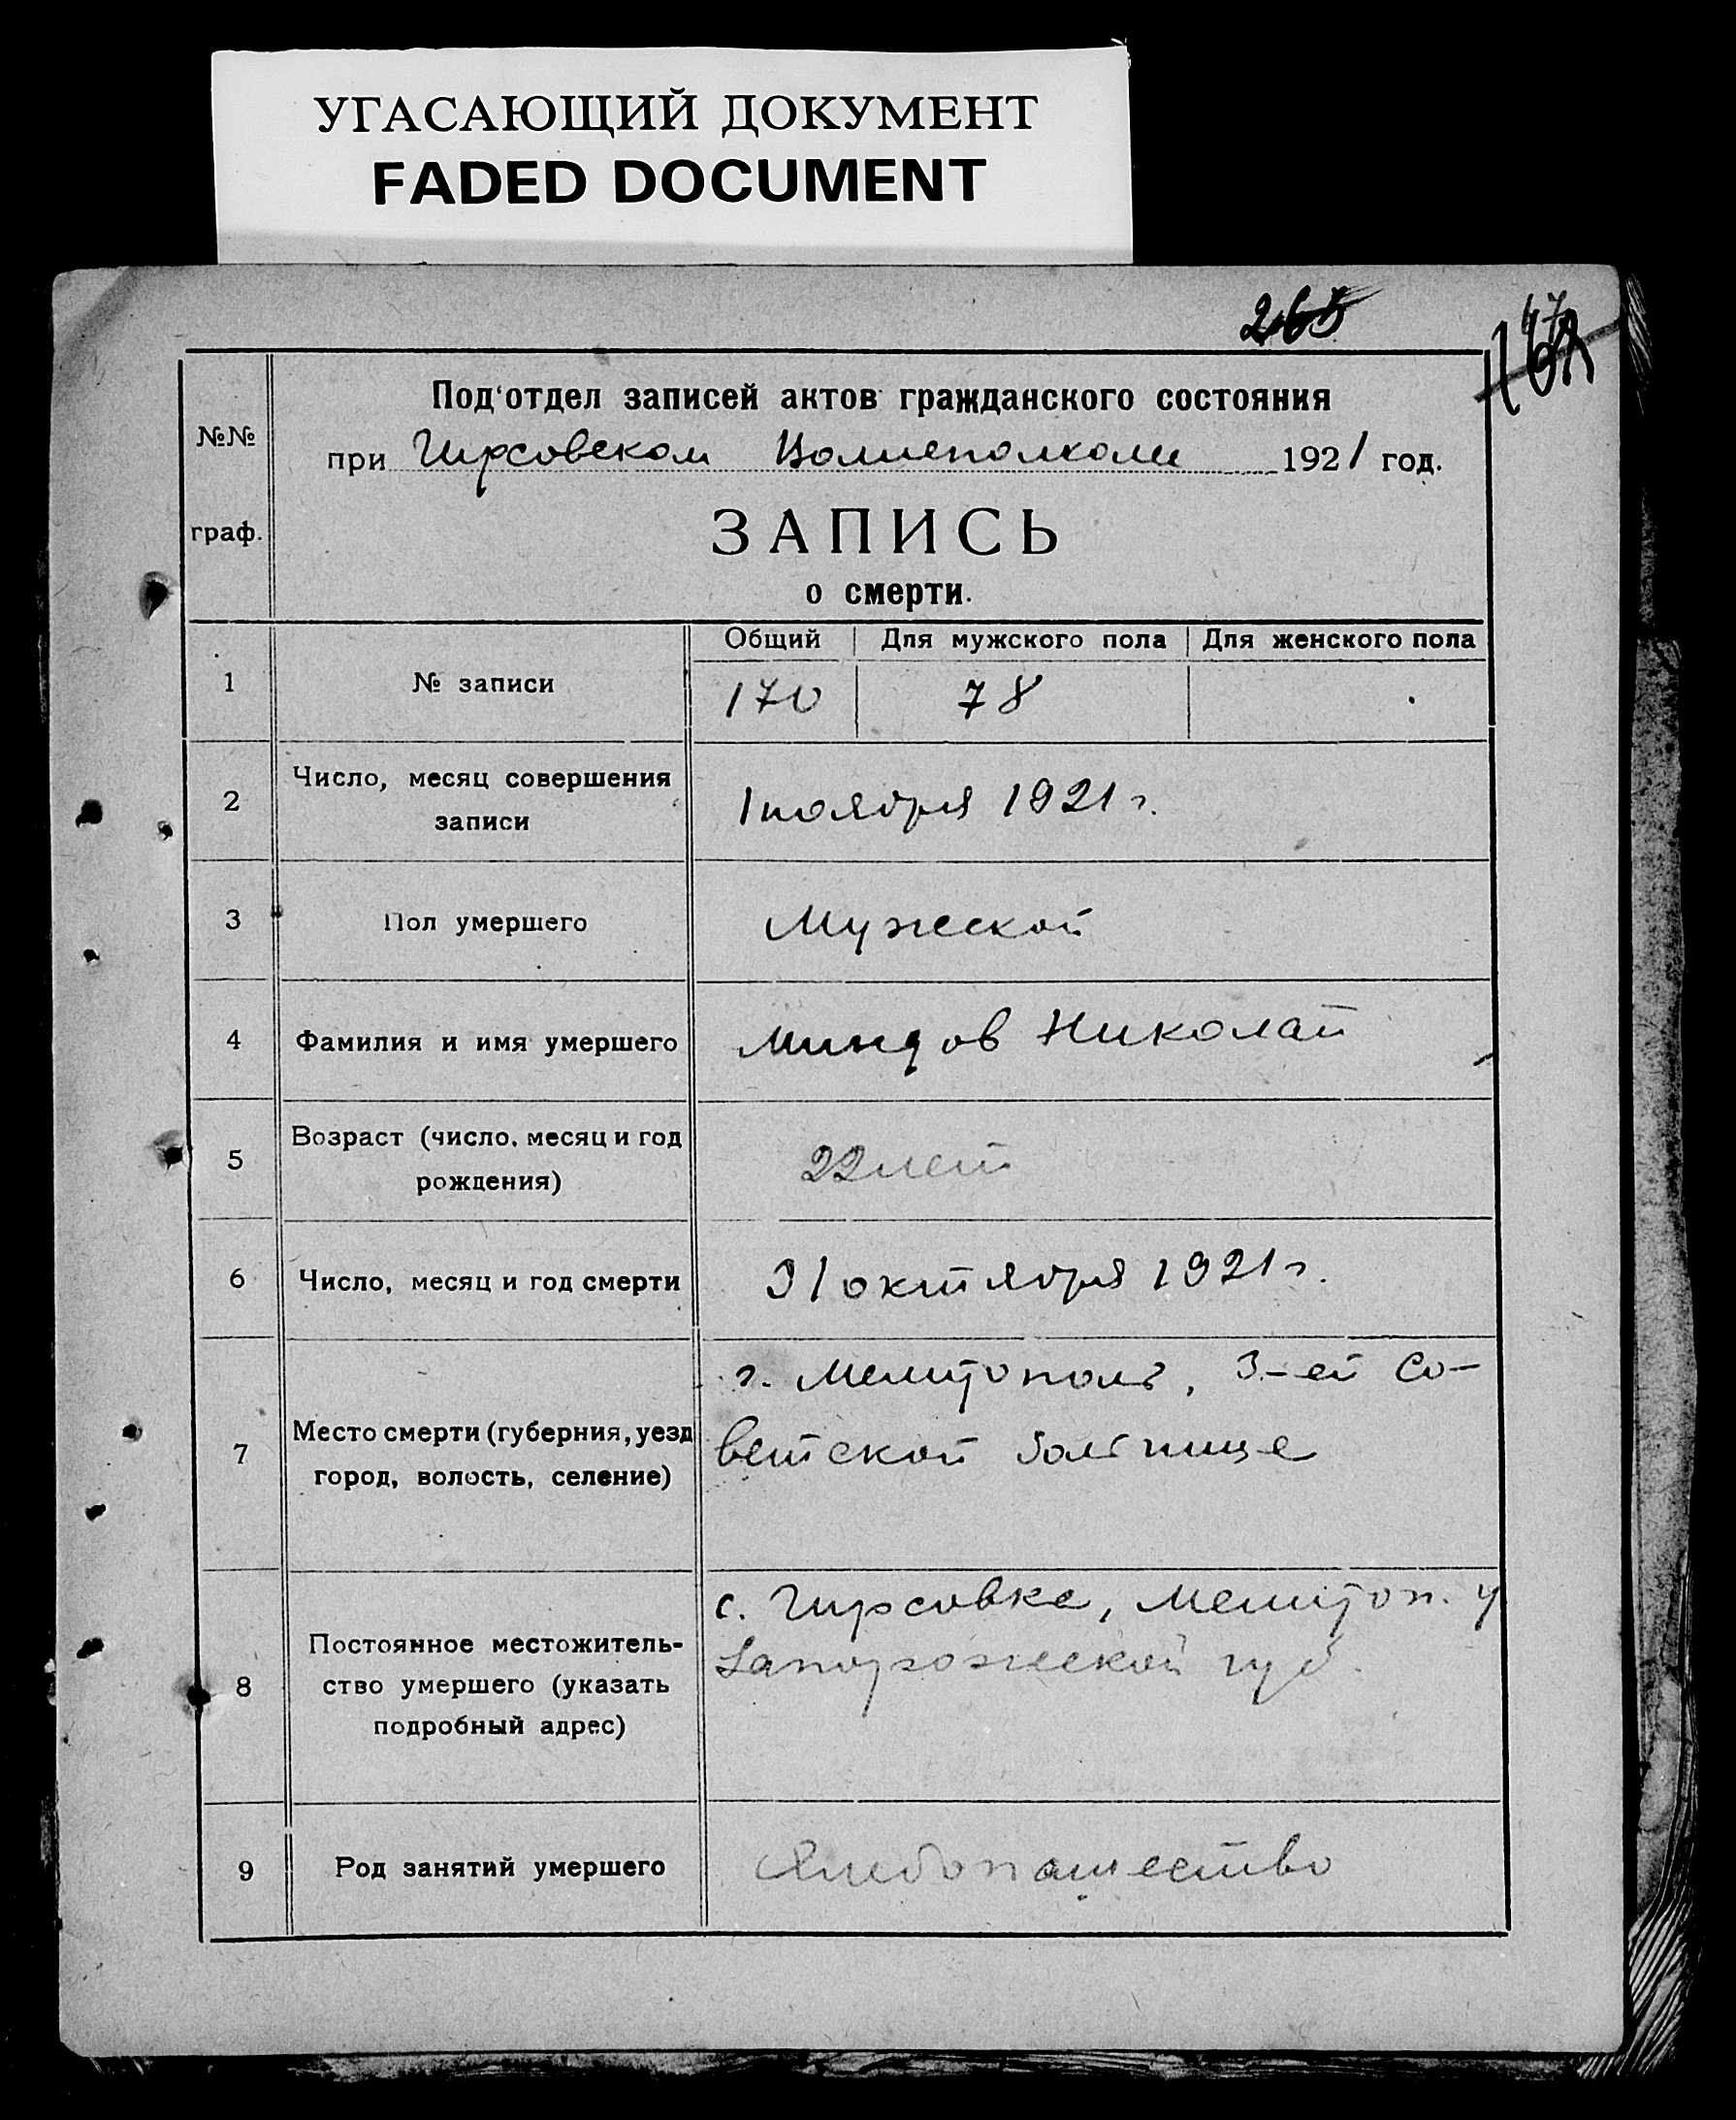 УГАСАЮЩИЙ ДОКУМЕНТ
FADED DOCUMENT
265
Под'отдел записей актов гражданского состояния
№№
при Гирсовском Волисполкоме 1921 год.
граф.
ЗАПИСЬ
о смерти.
Общий Для мужского пола Для женского пола
1 № записи 170 78
2 Число, месяц совершения
записи
1 ноября 1921 г.
3 Пол умершего Мужской
4 Фамилия и имя умершего Миндов Николай
5 Возраст (число, месяц и год
рождения)
22 лет
6 Число, месяц и год смерти 31 октября 1921 г.
7 Место смерти (губерния, уезд
город, волость, селение)
г. Мелитополь, 3-ей Со-
ветской больнице
8 Постоянное местожитель-
ство умершего (указать
подробный адрес)
с. Гирсовке, Мелитоп. у
Запорожской губ.
9 Род занятий умершего Хлебопашество